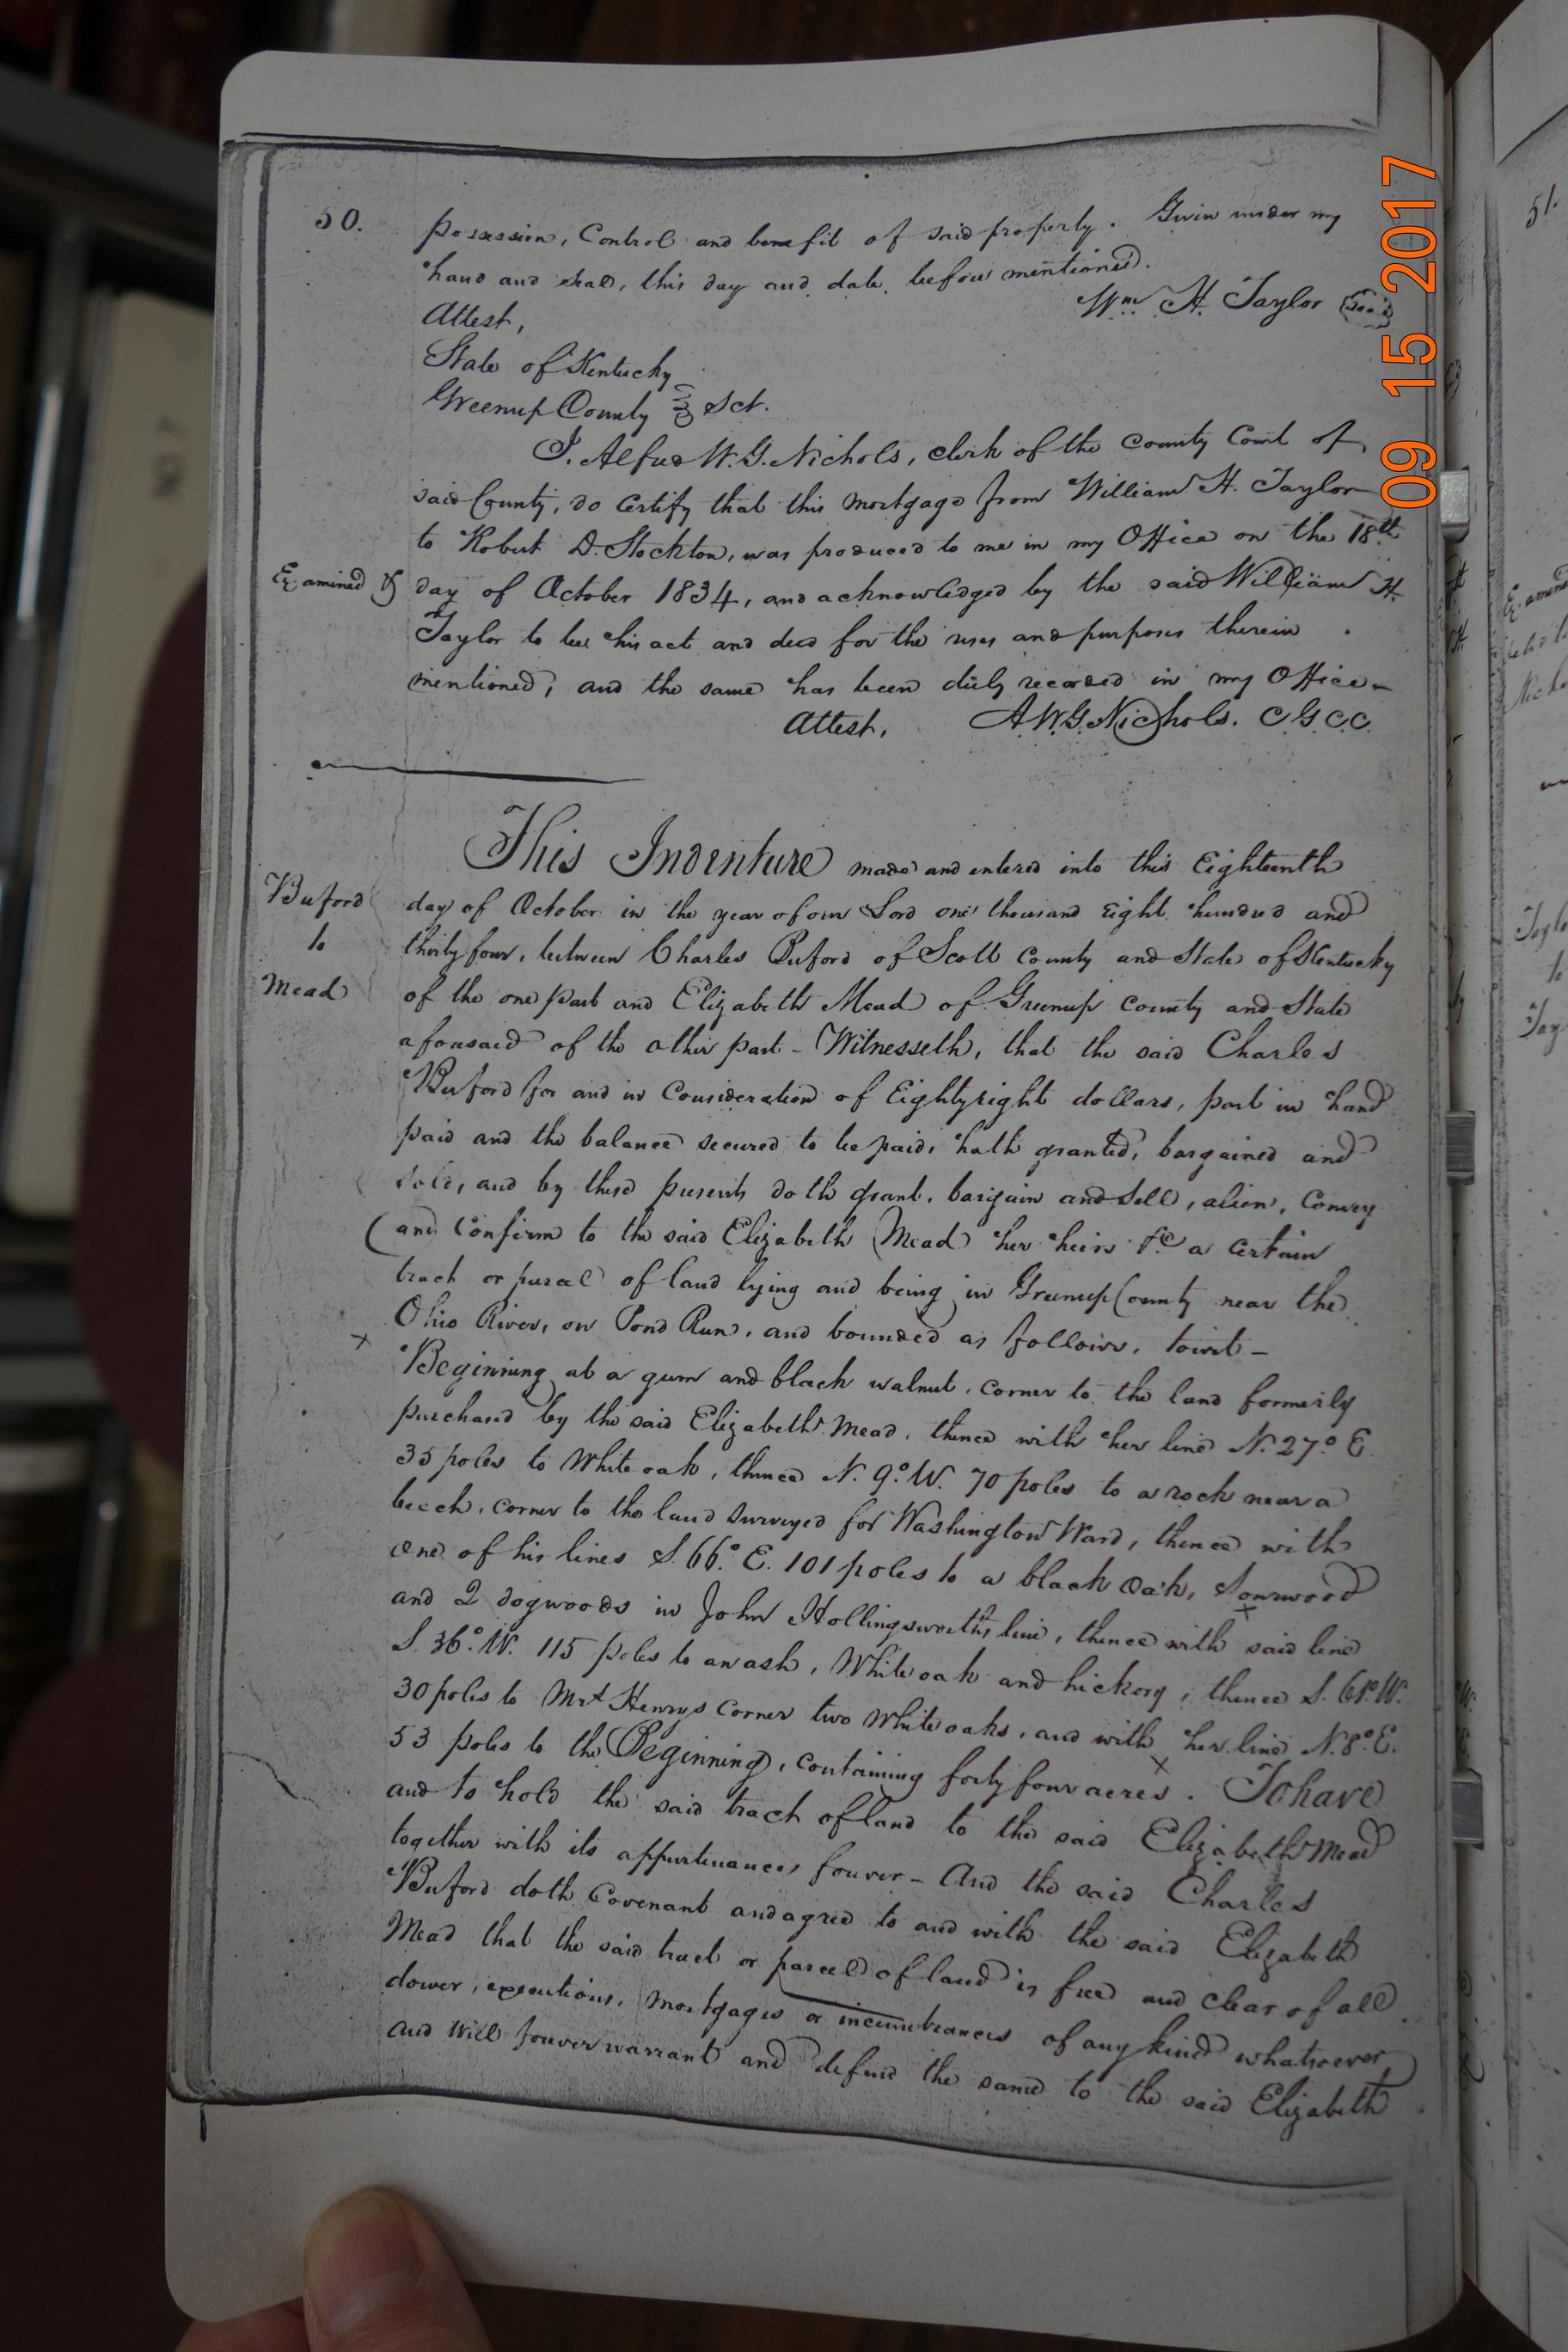 50.
possession, Control and benefit of said property. Given under my
hand and seal, this day and date before mentioned.
Wm. H. Taylor Seal
Attest,
State of Kentucky
Greenup County Sct.
I. Alfred W. G. Nichols, clerk of the county Court of
said County, do certify that this mortgage from William H. Taylor
to Robert D. Stockton, was produced to me in my Office on the 18th
Examined
day of October 1834, and acknowledged by the said William H.
Taylor to be his act and deed for the uses and purposes therein
mentioned, and the same has been duly recorded in my Office -
Attest, A.W.G. Nichols. C.G.C.C.
This Indenture made and entered into this Eighteenth
Buford
to
Mead
day of October in the year of our Lord one thousand eight hundred and
thirty four, between Charles Buford of Scott County and State of Kentucky
of the one part and Elizabeth Mead of Greenup county and State
aforesaid of the other part - Witnesseth, that the said Charles
Buford for and in Consideration of Eighty eight dollars, part in hand
paid and the balance secured to be paid, hath granted, bargained and
sold, and by these presents doth grant, bargain and sell, alien, Convey
and Confirm to the said Elizabeth Mead her heirs &c a certain
tract or parcel of land lying and being in Greenup County near the
Ohio River, on Pond Run, and bounded as follows, towit -
x
Beginning at a gum and black walnut, corner to the land formerly
purchased by the said Elizabeth Mead, thence with her line N. 27° E.
35 poles to White oak, thence N. 9° W. 70 poles to a rock near a
beech, corner to the land surveyed for Washington Ward, thence with
one of his lines S. 66° E. 101 poles to a black oak, Sourwood
and 2 dogwoods in John Hollingsworth's line, thence with said line
S. 36° W. 115 poles to an ash, White oak and hickory, thence S. 61° W.
30 poles to Mrs Henrys corner two white oaks, and with her line N. 8° E.
53 poles to the Beginning, containing forty four acres. To have
and to hold the said tract of land to the said Elizabeth Mead
together with its appurtenances forever - And the said Charles
Buford doth Covenant and agree to and with the said Elizabeth
Mead that the said tract or parcel of land is free and clear of all
dower, executions, mortgages or incumbrances of any kind whatsoever
and will forever warrant and defend the same to the said Elizabeth
09 15 2017
51.